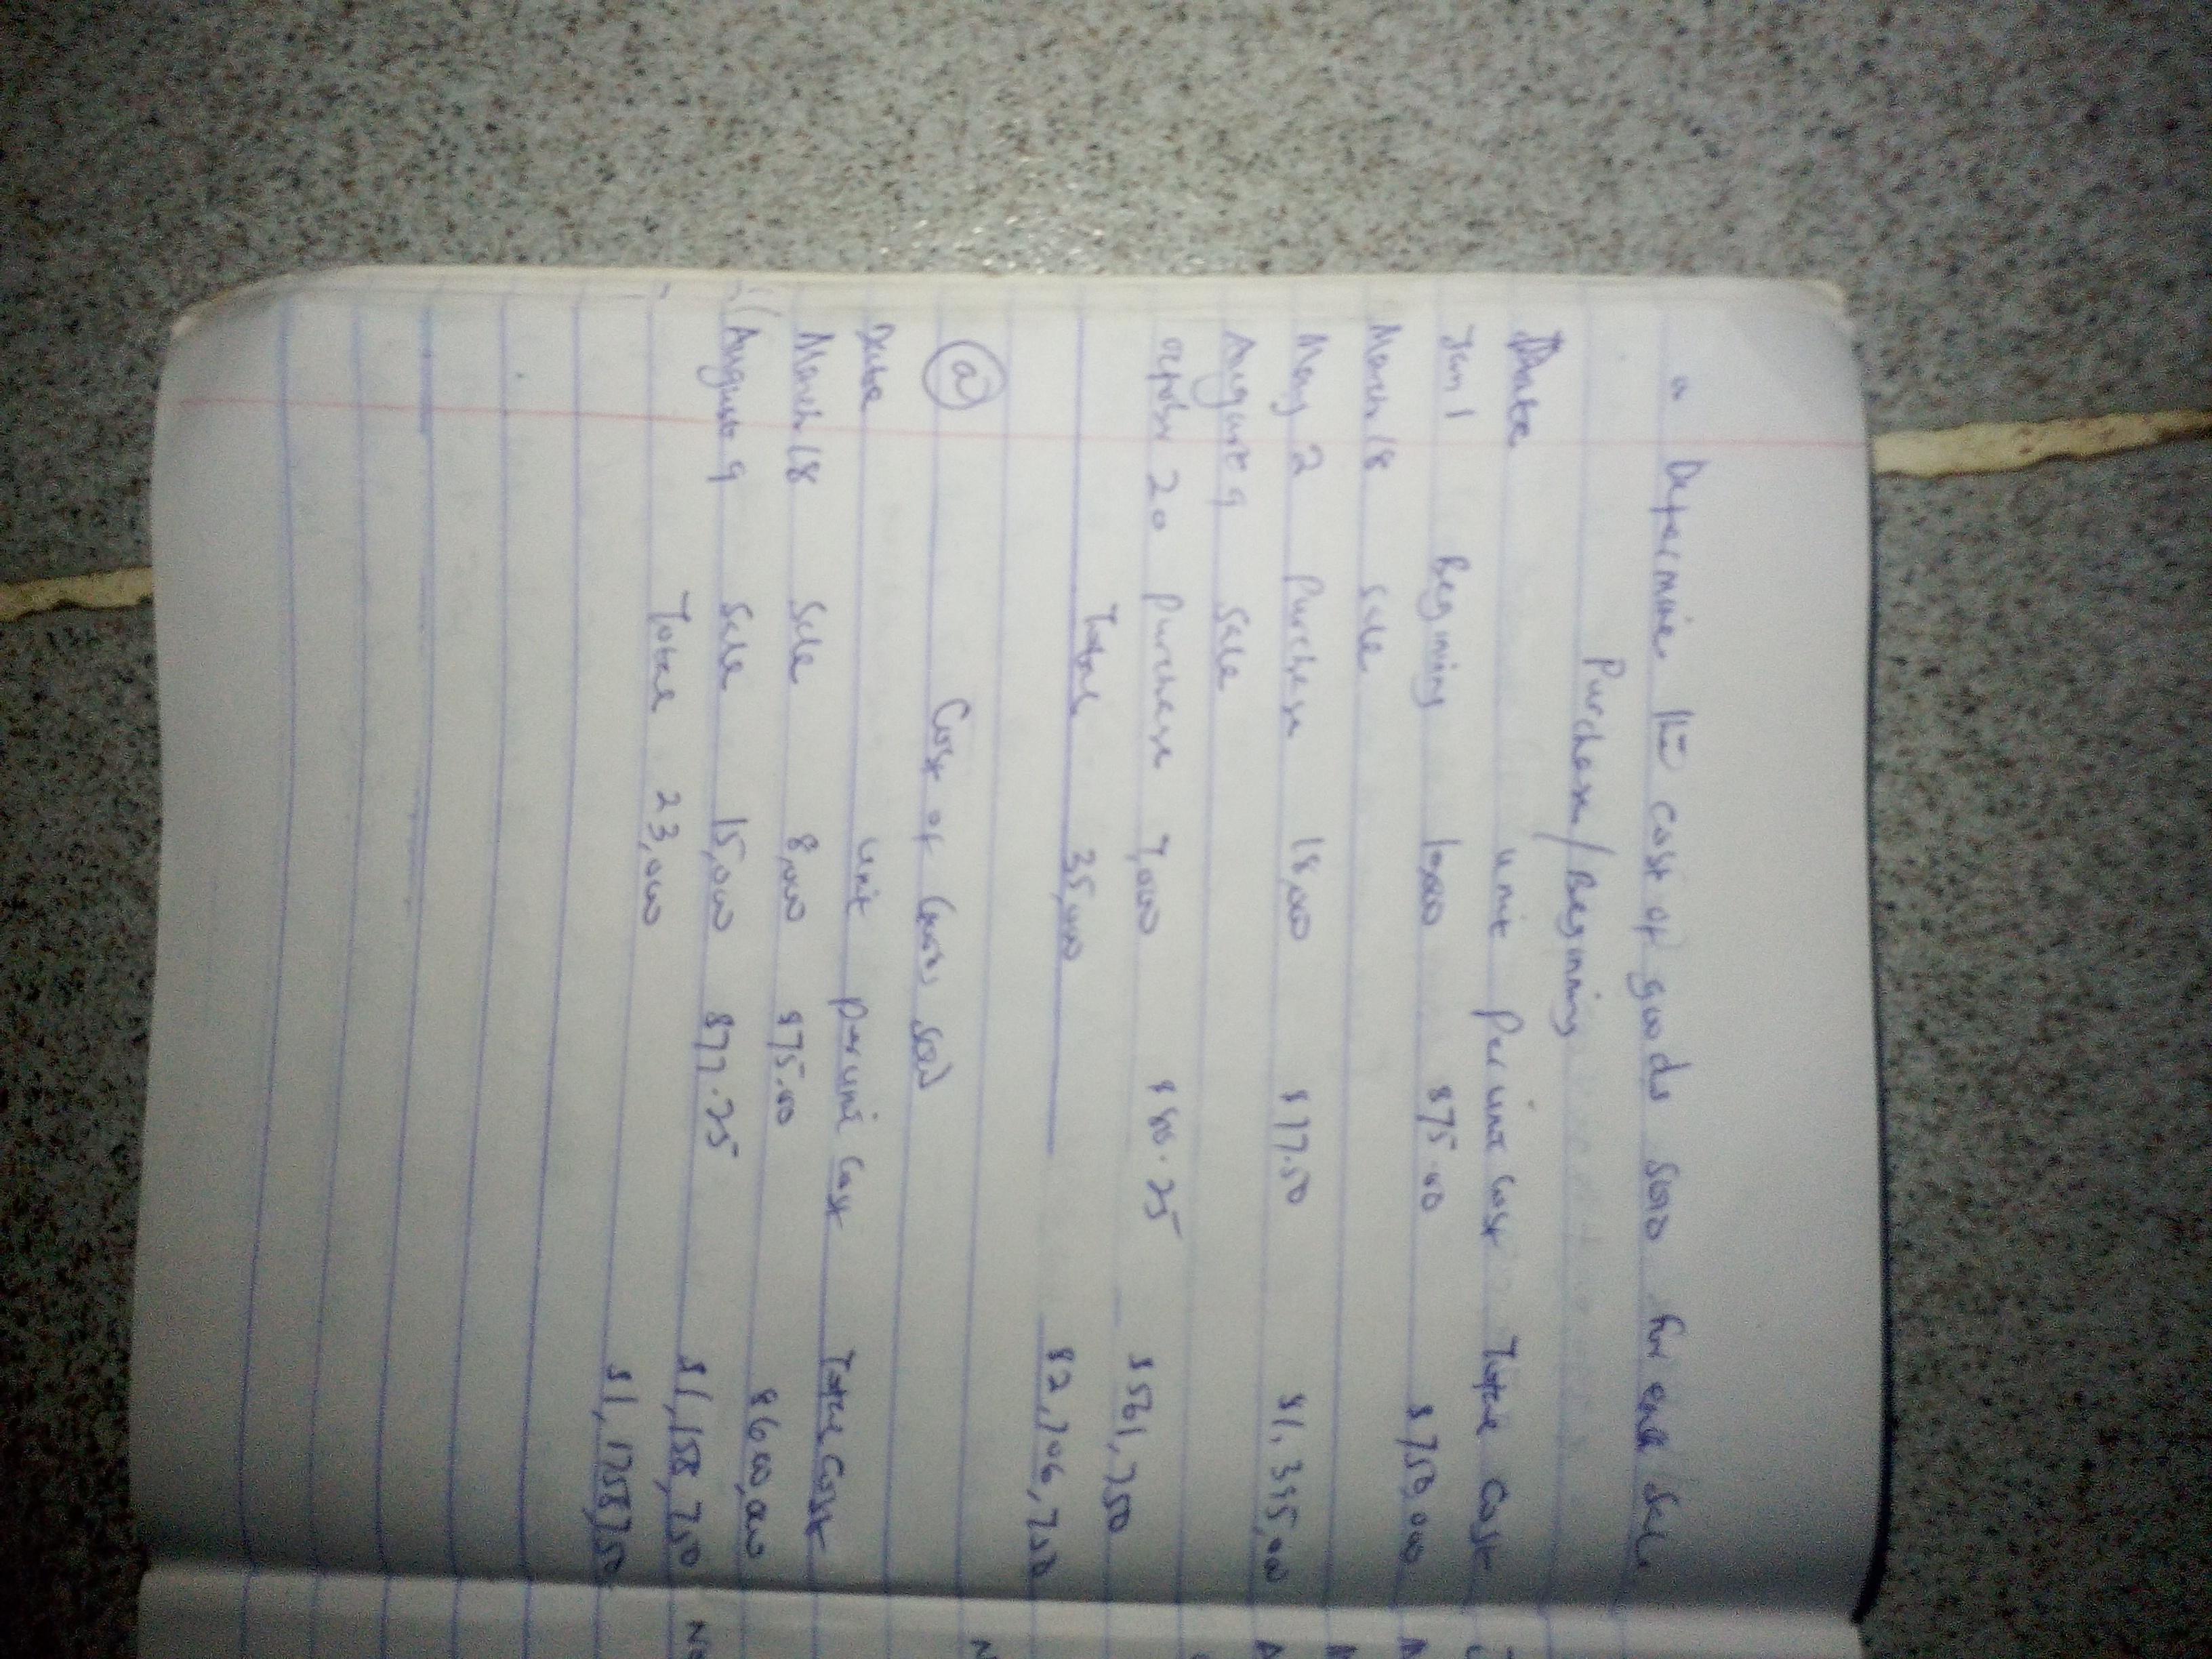 a Determine the cost of goods sold for each Sale
Purchase/Beginning
Date unit Per unit Cost Total Cost
Jan 1 Beginning 10,000 $75.00 $750,000
March 18 Sale
May 2 Purchase 18,000 $77.50 $1,395,000
August 9 Sale
October 20 Purchase 7,000 $80.25 $561,750
Total 35,000 $2,706,750
(a) Cost of Goods Sold
Date unit per unit Cost Total Cost
March 18 Sale 8,000 $75.00 $600,000
August 9 Sale 15,000 $77.25 $1,158,750
Total 23,000 $1,1758,750